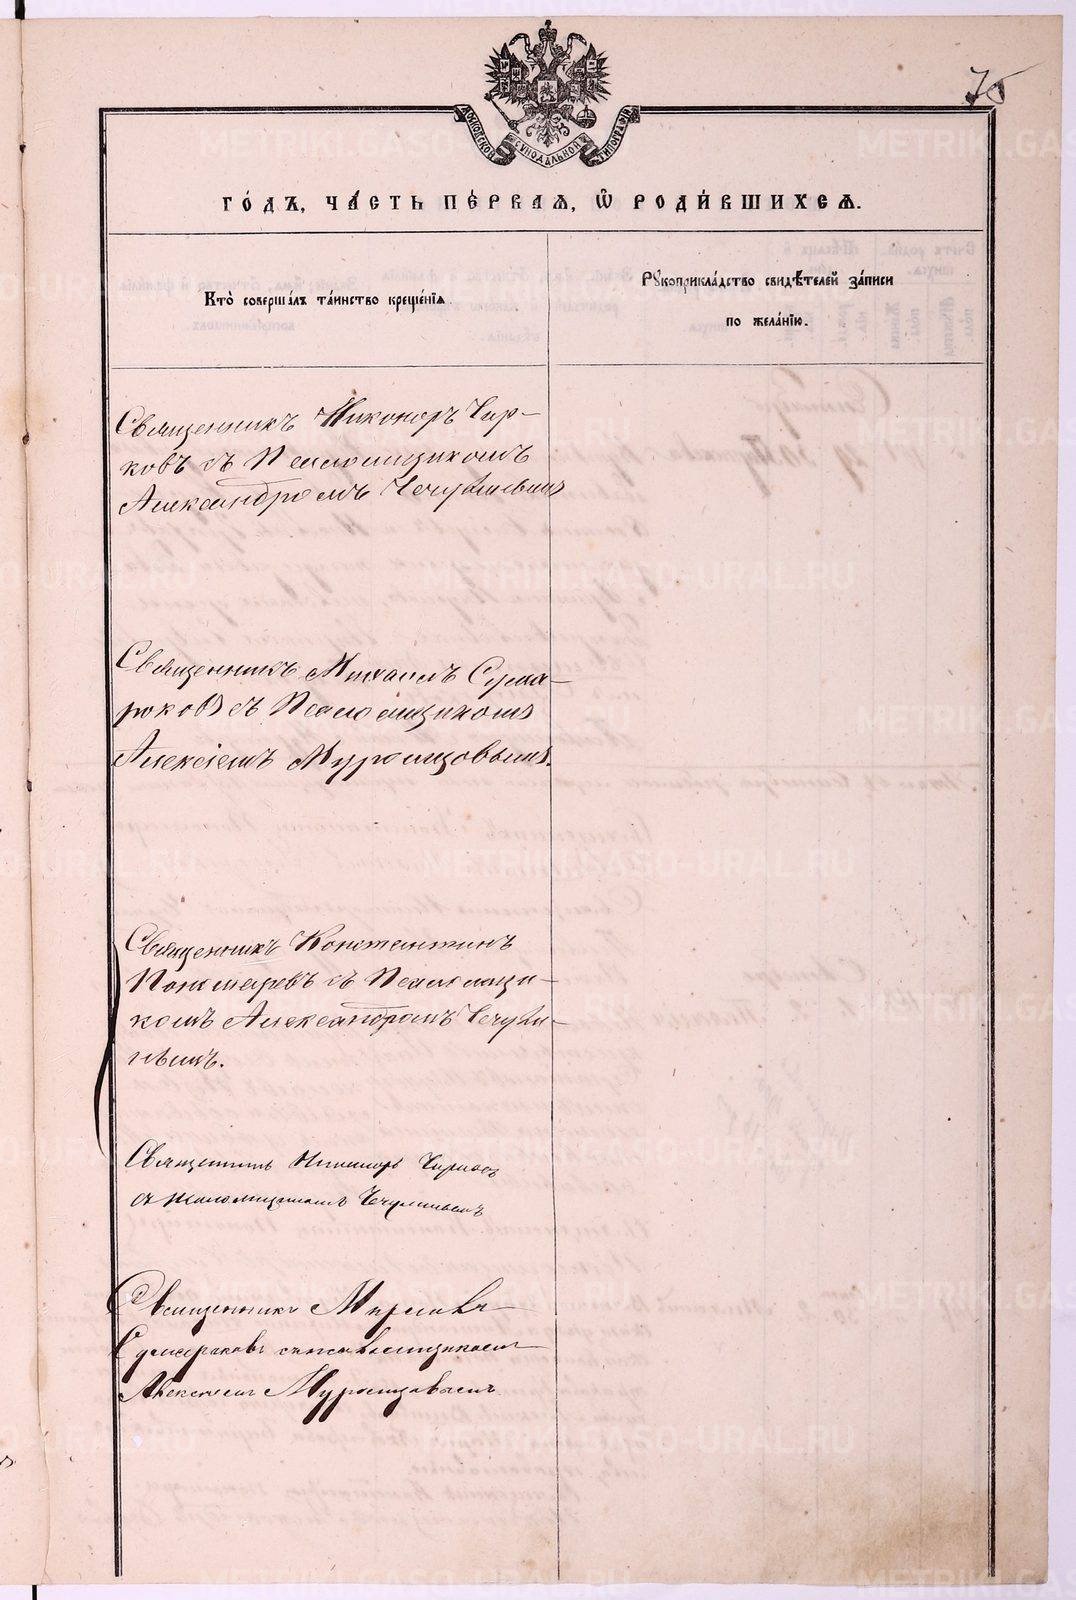 75
МОСКОВСКОЙ СѴНОДАЛЬНОЙ ТИПОГРАФІИ
ГО́ДЪ, ЧА́СТЬ ПЕ́РВАѦ, Ѽ РОДИ́ВШИХСѦ.
Кто̀ соверша́лъ та́инство креще́нїѧ.
Рꙋкоприкла́дство свидѣ́телей за́писи
по жела́нїю.
Священникъ Никоноръ Чир-
ковъ съ Псаломщикомъ
Александромъ Чечулинымъ
Священникъ Михаилъ Сума-
роковъ съ Псаломщикомъ
Алексіемъ Муромцовымъ.
Священникъ Константинъ
Пономаревъ съ Псаломщи-
комъ Александромъ Чечули-
нымъ.
Священникъ Никоноръ Чирковъ
съ псаломщикомъ Чечулинымъ
Священникъ Михаилъ
Сумароковъ съ псаломщикомъ
Алексіемъ Муромцовымъ
METRIKI.GASO-URAL.RU